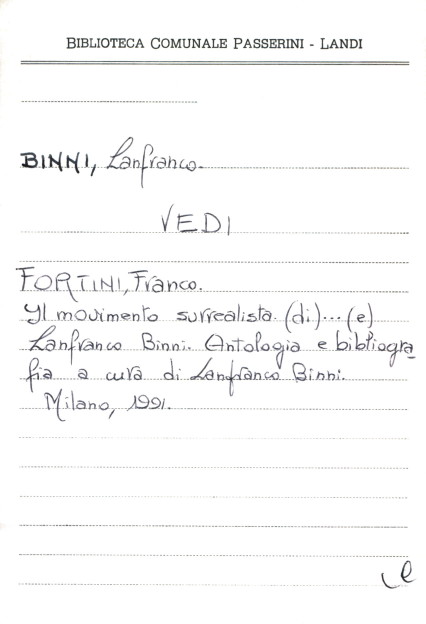 BIBLIOTECA COMUNALE PASSERINI - LANDI
BINNI, Lanfranco.
VEDI
FORTINI, Franco.
Il movimento surrealista. (di)... (e)
Lanfranco Binni. Antologia e bibliogra
fia a cura di Lanfranco Binni.
Milano, 1991.